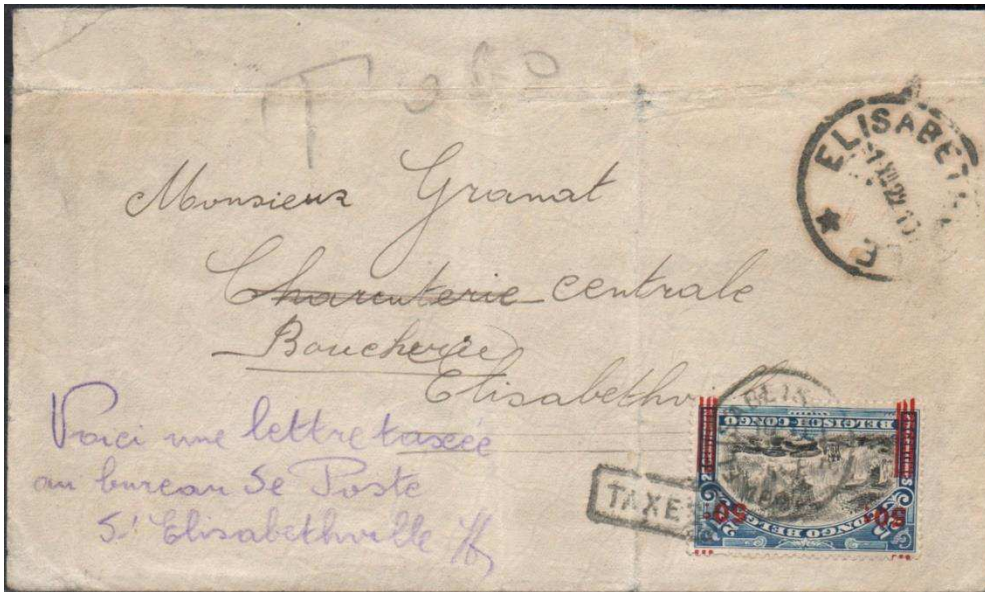 T 0.60
ELISABETH
7 XII 22
Monsieur Granat
Charcuterie centrale
Boucherie
Elisabethvi
Voici une lettre taxée
au bureau de Poste
d'Elisabethville
TAXE
BELGISCH-CONGO
CONGO BELGE
50 50